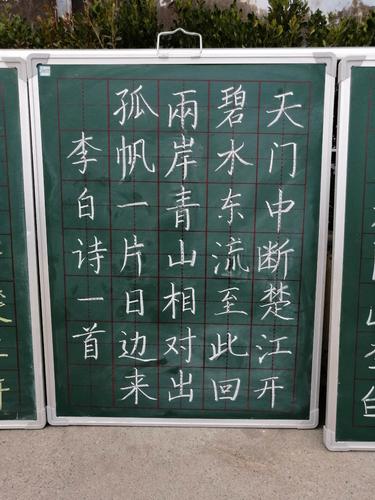 天门中断楚江开
碧水东流至此回
兩岸青山相对出
孤帆一片日边来
李白诗一首